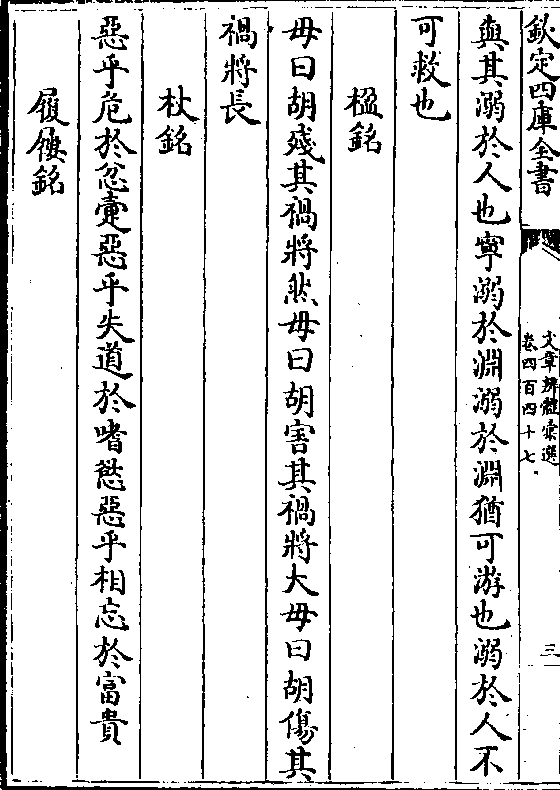 欽定四庫全書
文章辨體彙選
卷四百四十七
三
與其溺於人也寧溺於淵溺於淵猶可游也溺於人不
可救也
楹銘
毋曰胡殘其禍將然毋曰胡害其禍將大毋曰胡傷其
禍將長
杖銘
惡乎危於忿疐惡乎失道於嗜慾惡乎相忘於富貴
履屨銘